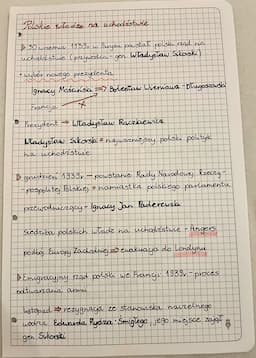 • Polskie władze na uchodźstwie
▷ 30 września 1939r. w Paryżu powstał polski rząd na
uchodźstwie (przywódca - gen. Władysław Sikorski)
• wybór nowego prezydenta
Ignacy Mościcki ⇒ Bolesław Wieniawa - Długoszowski
Francja ✗
Prezydent ⇒ Władysław Raczkiewicz
Władysław Sikorski najważniejszy polski polityk
na uchodźstwie
▷ grudzień 1939r. - powstanie Rady Narodowej Rzeczy-
-pospolitej Polskiej namiastka polskiego parlamentu
przewodniczący - Ignacy Jan Paderewski
siedziba polskich władz na uchodźstwie - Angers
podbój Europy Zachodniej ⇒ ewakuacja do Londynu
▷ Emigracyjny rząd polski we Francji 1939r. - proces
odtwarzania armii
listopad ⇒ rezygnacja ze stanowiska naczelnego
wodza Edwarda Rydza - Śmigłego, jego miejsce zajął
gen. Sikorski